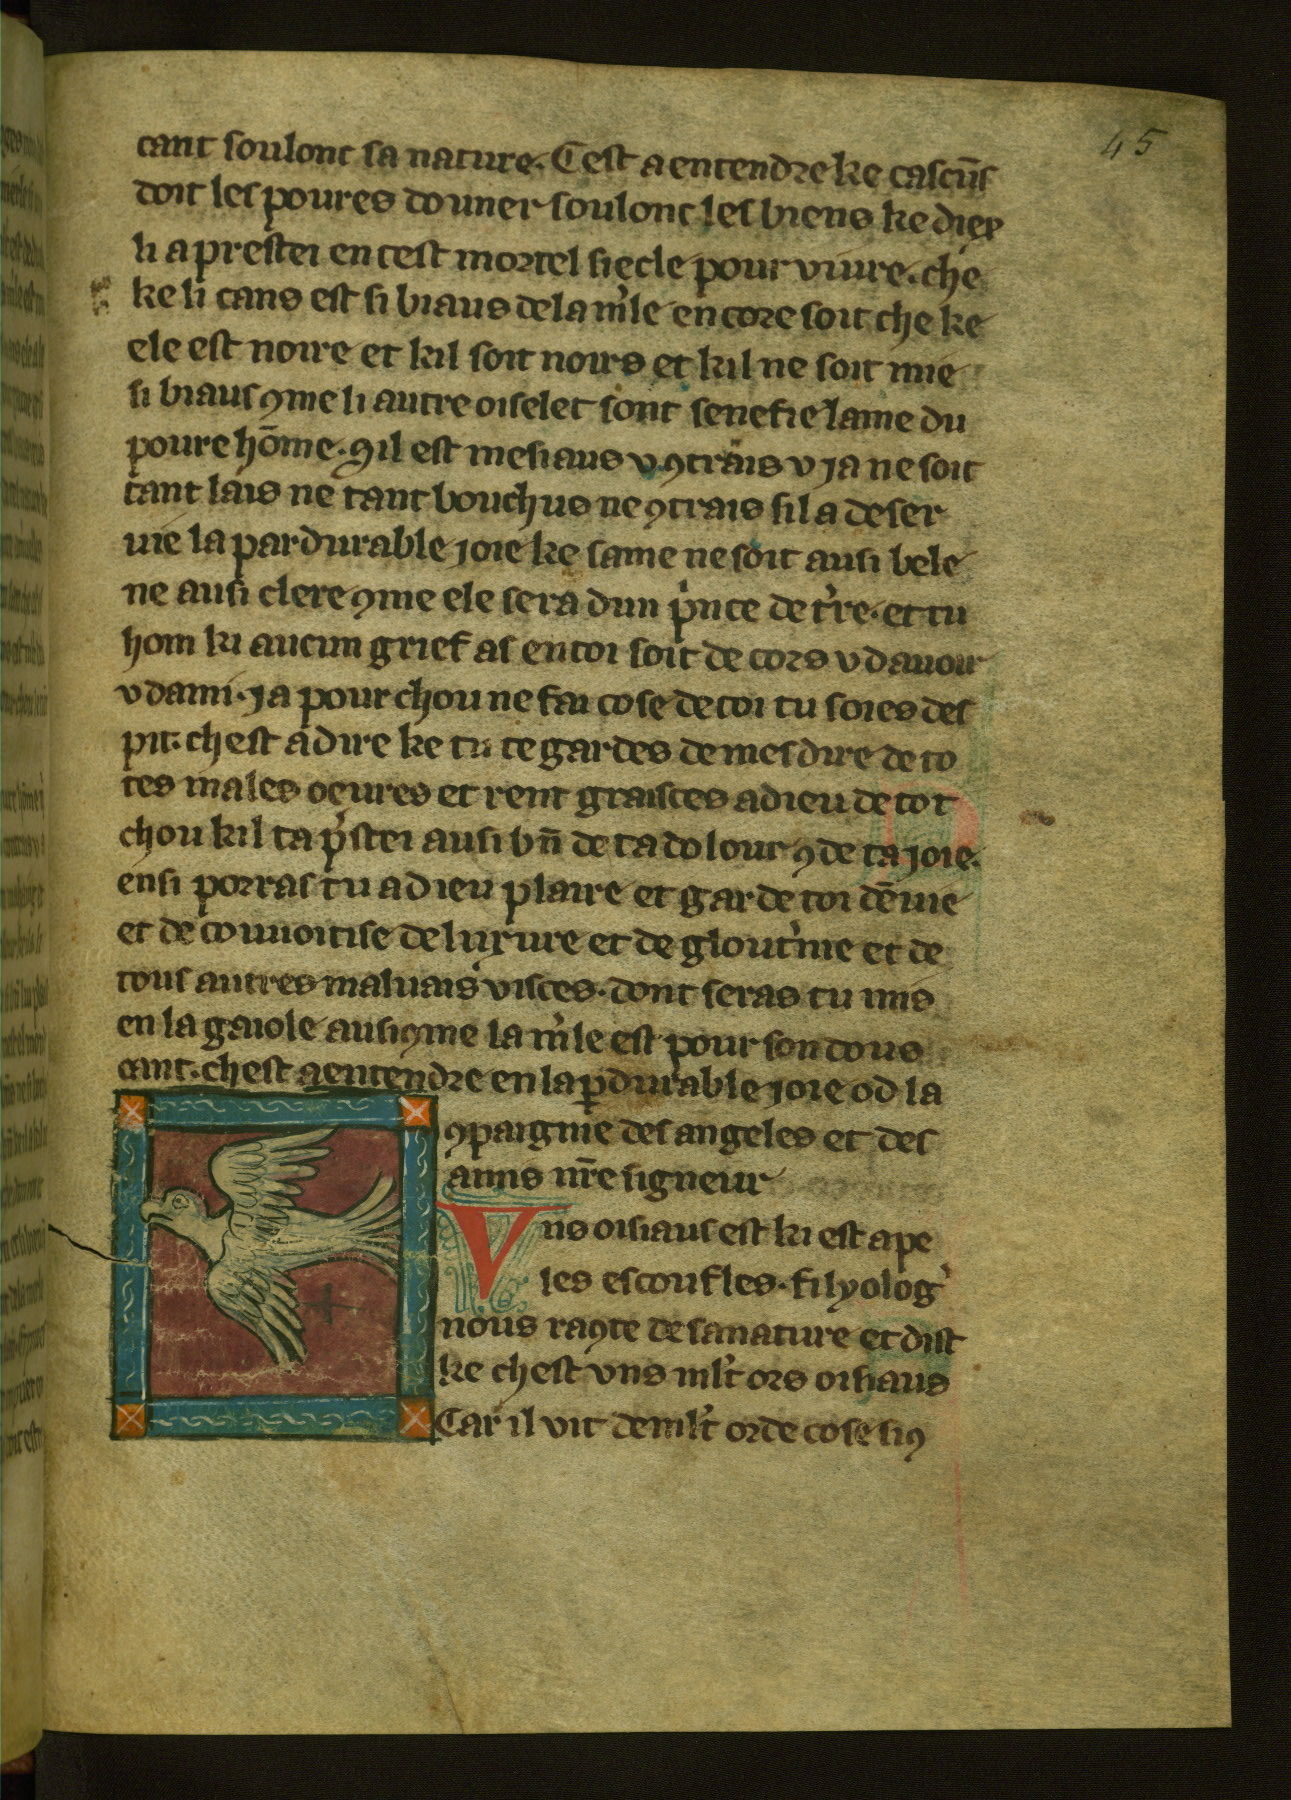 45
cant soulonc sa nature. C est a entendre ke cascūs
doit les poures douner soulonc les biens ke diex
li a prestei en cest mortel siecle pour viure. che
ke li cans est si biaus de la m'le encore soit che ke
ele est noire et kil soit noirs et kil ne soit mie
si biaus ꝯme li autre oiselet sont senefie lame du
poure hōme. Sil est mesiaus v ꝯtrais v ja ne soit
tant lais ne tant bouchus ne ꝯtrais sil a deser
uie la pardurable joie ke same ne soit ausi bele
ne ausi clere ꝯme ele sera dun p'nce de t're. et tu
hom ki aucun grief as en toi soit de cors v dauoir
v dami. ja pour chou ne fai cose de coi tu soies des
pit. ch est a dire ke tu te gardes de mesdire de to
tes males oeures et rent graisces a dieu de tot
chou kil ta p'stei ausi bn̄ de ta dolour ꝯ de ta joie.
ensi porras tu a dieu plaire et garde toi dēuie
et de couuoitise de luxure et de glout'nie et de
tous autres maluais visces. dont seras tu mis
en la gaiole ausi ꝯme la m'le est pour son dous
cant. ch est a entendre en la ꝑdurable joie od la
ꝯpaignie des angeles et des
amis nr̄e signeur
Vns oisiaus est ki est ape
les escoufles. filyolog'
nous raꝯte de sa nature et dist
ke ch est vns ml't ors oisiaus
Car il vit de ml't orde cose si ꝯ